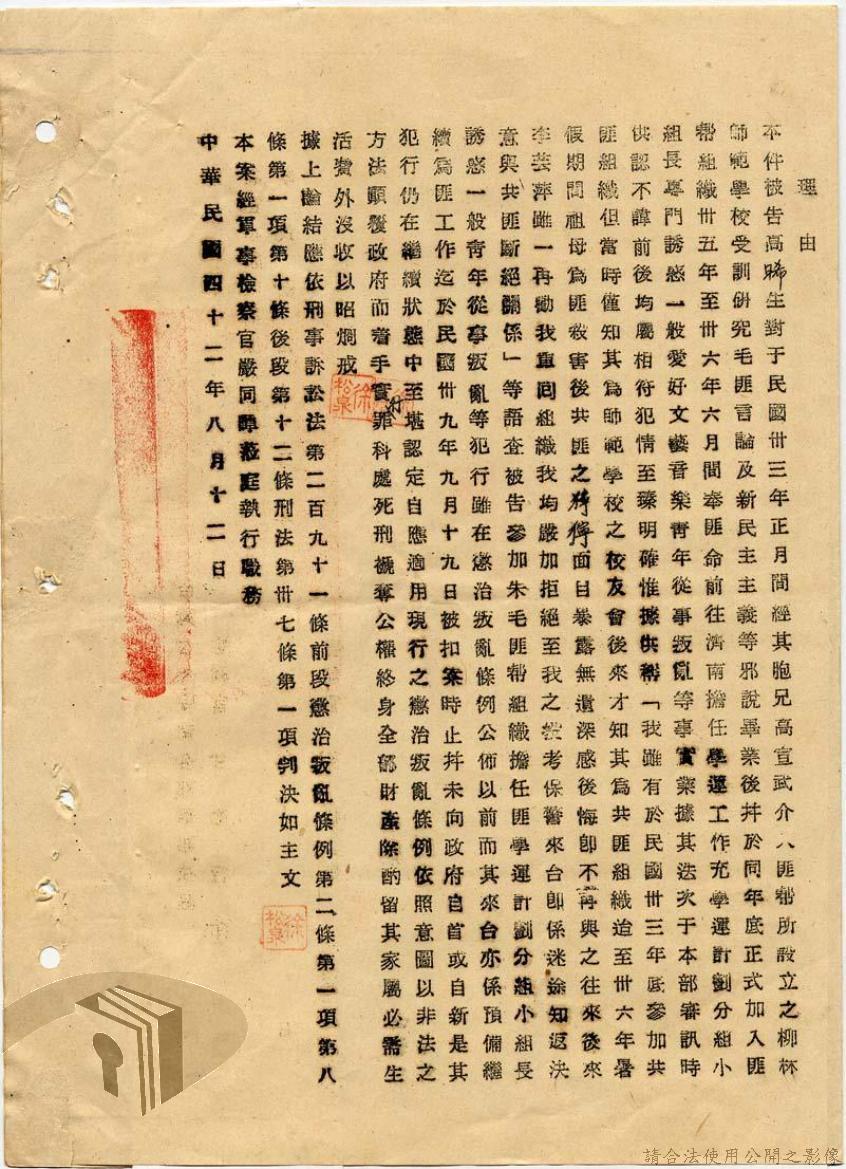 理由
本件被告高晞生對于民國卅三年正月間經其胞兄高宣武介入匪幫所設立之柳林
師範學校受訓研究毛匪言論及新民主主義等邪說畢業後幷於同年底正式加入匪
幫組織卅五年至卅六年六月間奉匪命前往濟南擔任學運工作充學運計劃分組小
組長專門誘惑一般愛好文藝音樂靑年從事叛亂等事實業據其法次于本部審訊時
供認不諱前後均屬相符犯情至臻明確惟據供稱「我雖有於民國卅三年底參加共
匪組織但當時僅知其為師範學校之校友會後來才知其為共匪組織迨至卅六年暑
假期間祖母為匪殺害後共匪之猙獰面目暴露無遺深感後悔卽不再與之往來後來
李芸萍雖一再勸我重回組織我均嚴加拒絕至我之投考保警來台卽係迷途知返決
意與共匪斷絕關係」等語查被告參加朱毛匪幫組織擔任匪學運計劃分組小組長
誘惑一般靑年從事叛亂等犯行雖在懲治叛亂條例公佈以前而其來台亦係預備繼
續為匪工作迄於民國卅九年九月十九日被扣案時止幷未向政府自首或自新是其
犯行仍在繼續狀態中至堪認定自應適用現行之懲治叛亂條例依照意圖以非法之
方法顚覆政府而着手實行罪科處死刑褫奪公權終身全部財產除酌留其家屬必需生
活費外沒收以昭烱戒
據上論結應依刑事訴訟法第二百九十一條前段懲治叛亂條例第二條第一項第八
條第一項第十條後段第十二條刑法第卅七條第一項判決如主文
本案經軍事檢察官嚴同蒞庭執行職務
中華民國四十二年八月十二日
徐松泉
徐松泉
請合法使用公開之影像